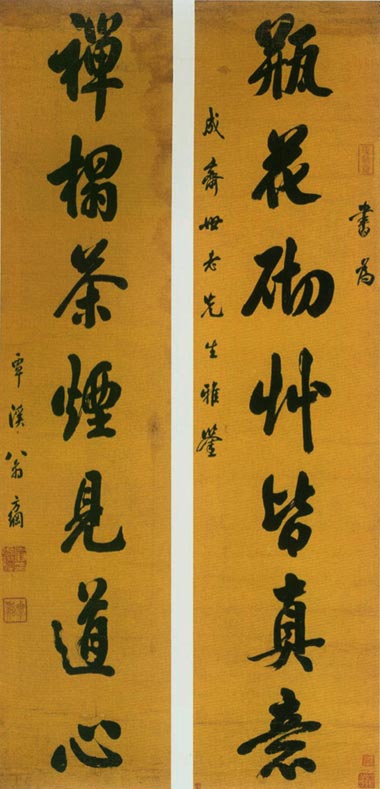 瓶花砌艸皆真意
書為
成齋世老先生雅鑒
禪榻茶煙見道心
覃溪翁方綱